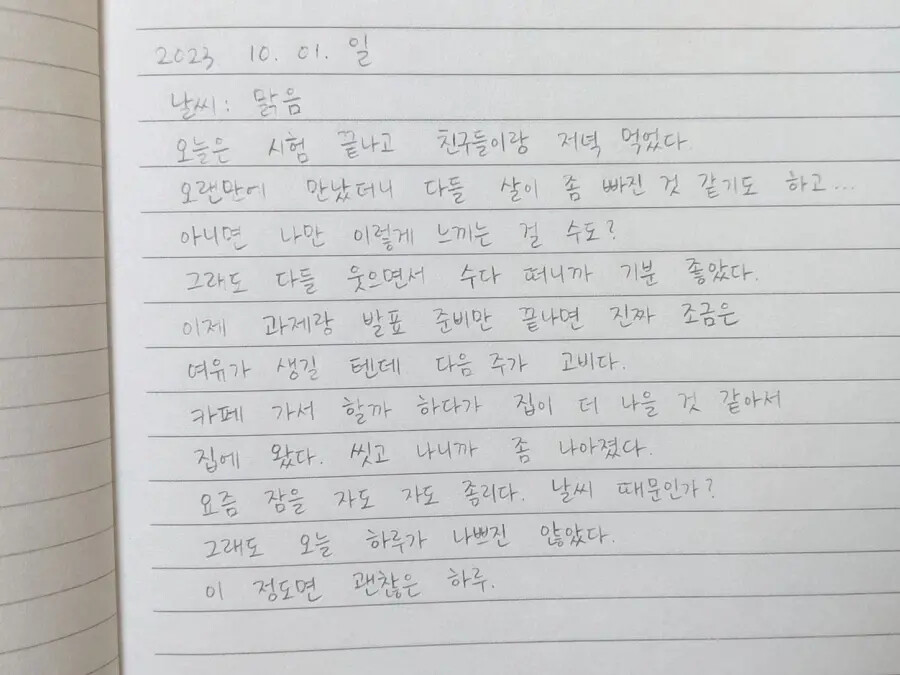 2023 10. 01. 일
날씨: 맑음
오늘은 시험 끝나고 친구들이랑 저녁 먹었다.
오랜만에 만났더니 다들 살이 좀 빠진 것 같기도 하고...
아니면 나만 이렇게 느끼는 걸 수도?
그래도 다들 웃으면서 수다 떠니까 기분 좋았다.
이제 과제랑 발표 준비만 끝나면 진짜 조금은
여유가 생길 텐데 다음 주가 고비다.
카페 가서 할까 하다가 집이 더 나을 것 같아서
집에 왔다. 씻고 나니까 좀 나아졌다.
요즘 잠을 자도 자도 졸리다. 날씨 때문인가?
그래도 오늘 하루가 나쁘진 않았다.
이 정도면 괜찮은 하루.